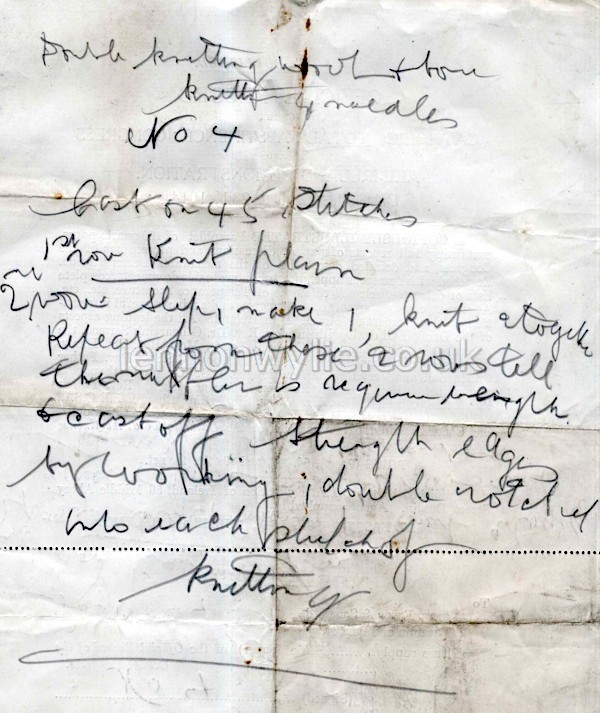 Double knitting wool & bone
knitting needles
No 4
Cast on 45 stitches
1st row Knit plain
2nd row slip 1, make 1, knit 2 together
Repeat from these 2 rows till
the muffler is required length
& cast off Strength edges
by working 1 double crochet
into each stitch of
knitting
lennonwylie.co.uk